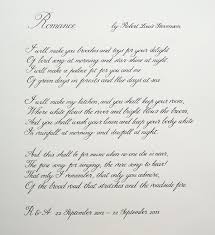 Romance by Robert Louis Stevenson
I will make you brooches and toys for your delight
Of bird song at morning and star shine at night.
I will make a palace fit for you and me
Of green days in forests and blue days at sea.
I will make my kitchen, and you shall keep your room,
Where white flows the river and bright blows the broom,
And you shall wash your linen and keep your body white
In rainfall at morning and dewfall at night.
And this shall be for music when no one else is near,
The fine song for singing, the rare song to hear!
That only I remember, that only you admire,
Of the broad road that stretches and the roadside fire.
R & A September September